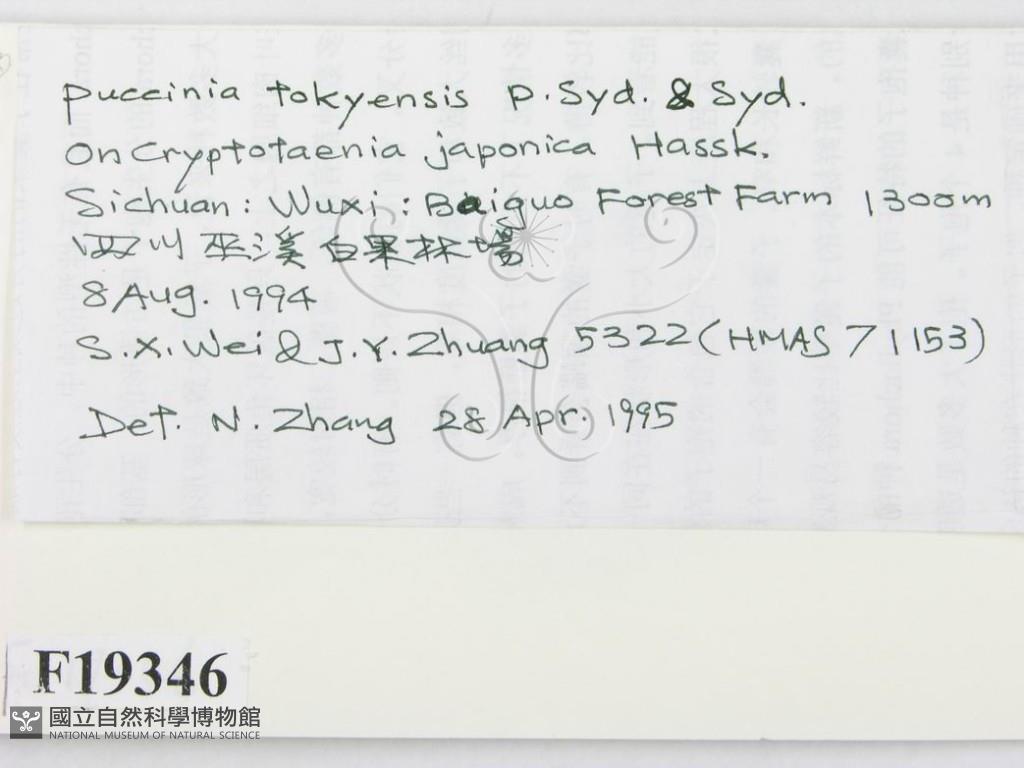 Puccinia tokyensis P. Syd. & Syd.
On Cryptotaenia japonica Hassk.
Sichuan: Wuxi: Baiguo Forest Farm 1300m
四川 巫溪 白果林場
8 Aug. 1994
S.X. Wei & J.Y. Zhuang 5322 (HMAS 71153)
Det. N. Zhang 28 Apr. 1995
F19346
國立自然科學博物館
NATIONAL MUSEUM OF NATURAL SCIENCE